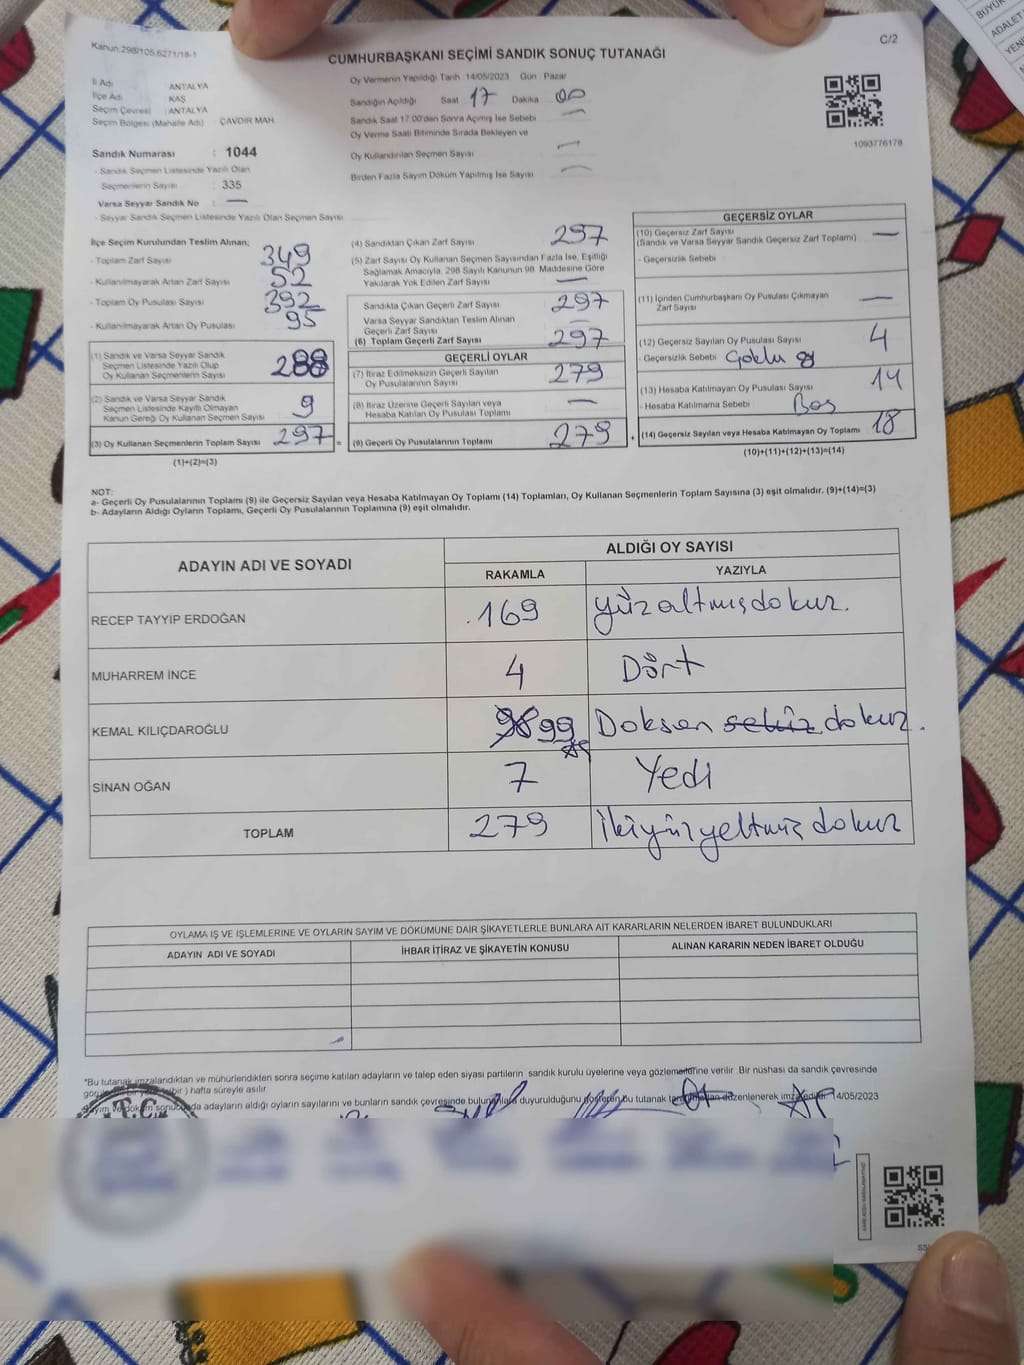 Kanun:298/105,6271/18-1
C/2
CUMHURBAŞKANI SEÇİMİ SANDIK SONUÇ TUTANAĞI
İl Adı : ANTALYA
İlçe Adı : KAŞ
Seçim Çevresi : ANTALYA
Seçim Bölgesi (Mahalle Adı) : ÇAVDIR MAH
Sandık Numarası : 1044
- Sandık Seçmen Listesinde Yazılı Olan
Seçmenlerin Sayısı : 335
Varsa Seyyar Sandık No : —
- Seyyar Sandık Seçmen Listesinde Yazılı Olan Seçmen Sayısı
Oy Vermenin Yapıldığı Tarih 14/05/2023 Gün : Pazar
Sandığın Açıldığı Saat 17 Dakika 00
Sandık Saat 17:00'den Sonra Açılmış İse Sebebi —
Oy Verme Saati Bitiminde Sırada Bekleyen ve
Oy Kullandırılan Seçmen Sayısı —
Birden Fazla Sayım Döküm Yapılmış İse Sayısı —
1093776178
İlçe Seçim Kurulundan Teslim Alınan;
- Toplam Zarf Sayısı 349
- Kullanılmayarak Artan Zarf Sayısı 52
- Toplam Oy Pusulası Sayısı 392
- Kullanılmayarak Artan Oy Pusulası 95
(1) Sandık ve Varsa Seyyar Sandık
Seçmen Listesinde Yazılı Olup
Oy Kullanan Seçmenlerin Sayısı 288
(2) Sandık ve Varsa Seyyar Sandık
Seçmen Listesinde Kayıtlı Olmayan
Kanun Gereği Oy Kullanan Seçmen Sayısı 9
(3) Oy Kullanan Seçmenlerin Toplam Sayısı 297 =
(1)+(2)=(3)
(4) Sandıktan Çıkan Zarf Sayısı 297
(5) Zarf Sayısı Oy Kullanan Seçmen Sayısından Fazla İse, Eşitliği
Sağlamak Amacıyla, 298 Sayılı Kanunun 98. Maddesine Göre
Yakılarak Yok Edilen Zarf Sayısı —
Sandıkta Çıkan Geçerli Zarf Sayısı 297
Varsa Seyyar Sandıktan Teslim Alınan
Geçerli Zarf Sayısı —
(6) Toplam Geçerli Zarf Sayısı 297
GEÇERLİ OYLAR
(7) İtiraz Edilmeksizin Geçerli Sayılan
Oy Pusulalarının Sayısı 279
(8) İtiraz Üzerine Geçerli Sayılan veya
Hesaba Katılan Oy Pusulası Toplamı —
(9) Geçerli Oy Pusulalarının Toplamı 279 +
GEÇERSİZ OYLAR
(10) Geçersiz Zarf Sayısı
(Sandık ve Varsa Seyyar Sandık Geçersiz Zarf Toplamı) —
- Geçersizlik Sebebi
(11) İçinden Cumhurbaşkanı Oy Pusulası Çıkmayan
Zarf Sayısı —
(12) Geçersiz Sayılan Oy Pusulası Sayısı 4
- Geçersizlik Sebebi Çoklu oy
(13) Hesaba Katılmayan Oy Pusulası Sayısı 14
- Hesaba Katılmama Sebebi Boş
(14) Geçersiz Sayılan veya Hesaba Katılmayan Oy Toplamı 18
(10)+(11)+(12)+(13)=(14)
NOT:
a- Geçerli Oy Pusulalarının Toplamı (9) ile Geçersiz Sayılan veya Hesaba Katılmayan Oy Toplamı (14) Toplamları, Oy Kullanan Seçmenlerin Toplam Sayısına (3) eşit olmalıdır. (9)+(14)=(3)
b- Adayların Aldığı Oyların Toplamı, Geçerli Oy Pusulalarının Toplamına (9) eşit olmalıdır.
ADAYIN ADI VE SOYADI
ALDIĞI OY SAYISI
RAKAMLA YAZIYLA
RECEP TAYYİP ERDOĞAN 169 yüzaltmışdokuz.
MUHARREM İNCE 4 Dört
KEMAL KILIÇDAROĞLU 98 99 Doksan sekiz dokuz.
SİNAN OĞAN 7 Yedi
TOPLAM 279 ikiyüzyetmiş dokuz
OYLAMA İŞ VE İŞLEMLERİNE VE OYLARIN SAYIM VE DÖKÜMÜNE DAİR ŞİKAYETLERLE BUNLARA AİT KARARLARIN NELERDEN İBARET BULUNDUKLARI
ADAYIN ADI VE SOYADI İHBAR İTİRAZ VE ŞİKAYETİN KONUSU ALINAN KARARIN NEDEN İBARET OLDUĞU
*Bu tutanak imzalandıktan ve mühürlendikten sonra seçime katılan adayların ve talep eden siyasi partilerin sandık kurulu üyelerine veya gözlemcilerine verilir. Bir nüshası da sandık çevresinde
(bir) hafta süreyle asılır.
Sayım ve döküm sonucunda adayların aldığı oyların sayılarını ve bunların sandık çevresinde duyurulduğunu gösteren bu tutanak tarafımızdan düzenlenerek imza edildi. 14/05/2023
T.C.
BÜYÜK
ADALET
YENİ